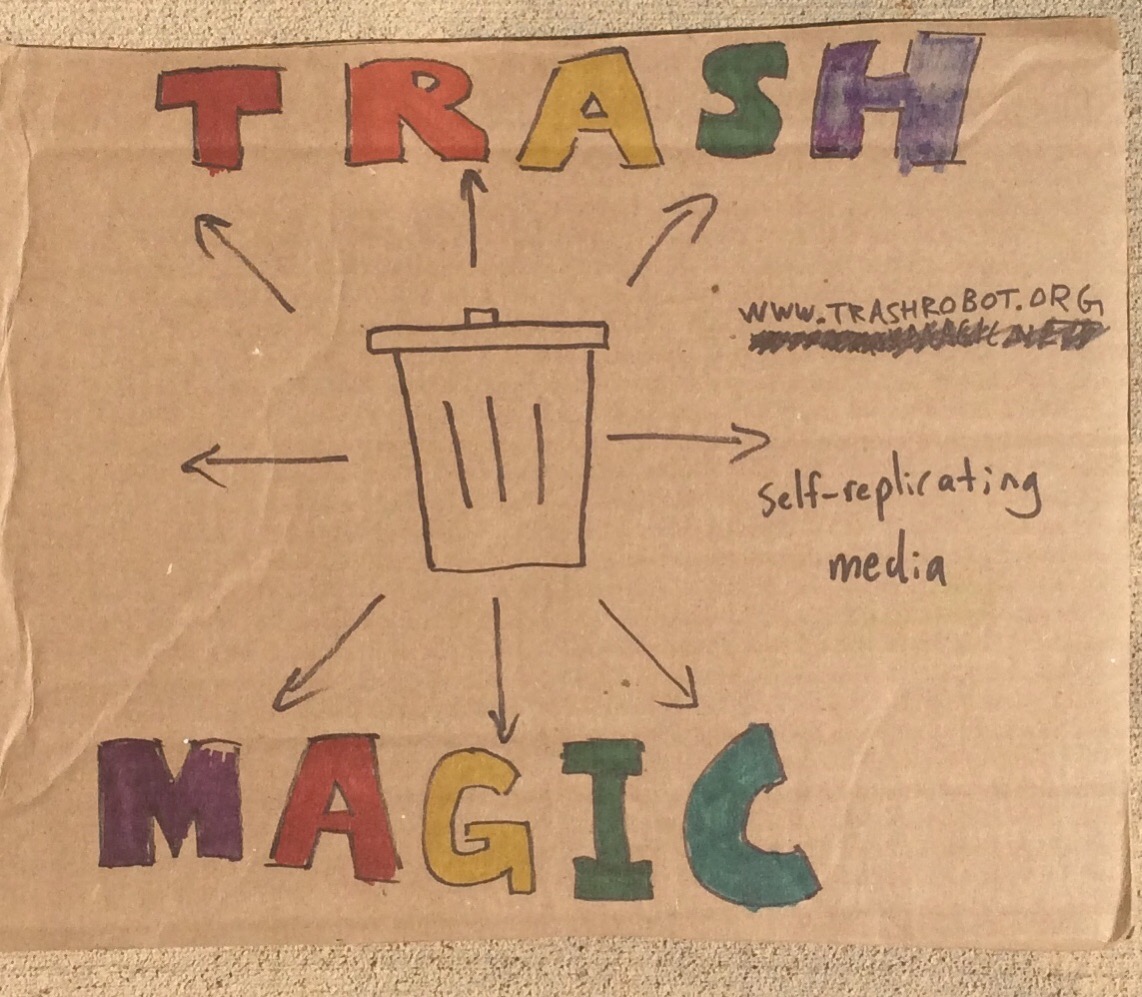 TRASH
WWW.TRASHROBOT.ORG
self-replicating
media
MAGIC